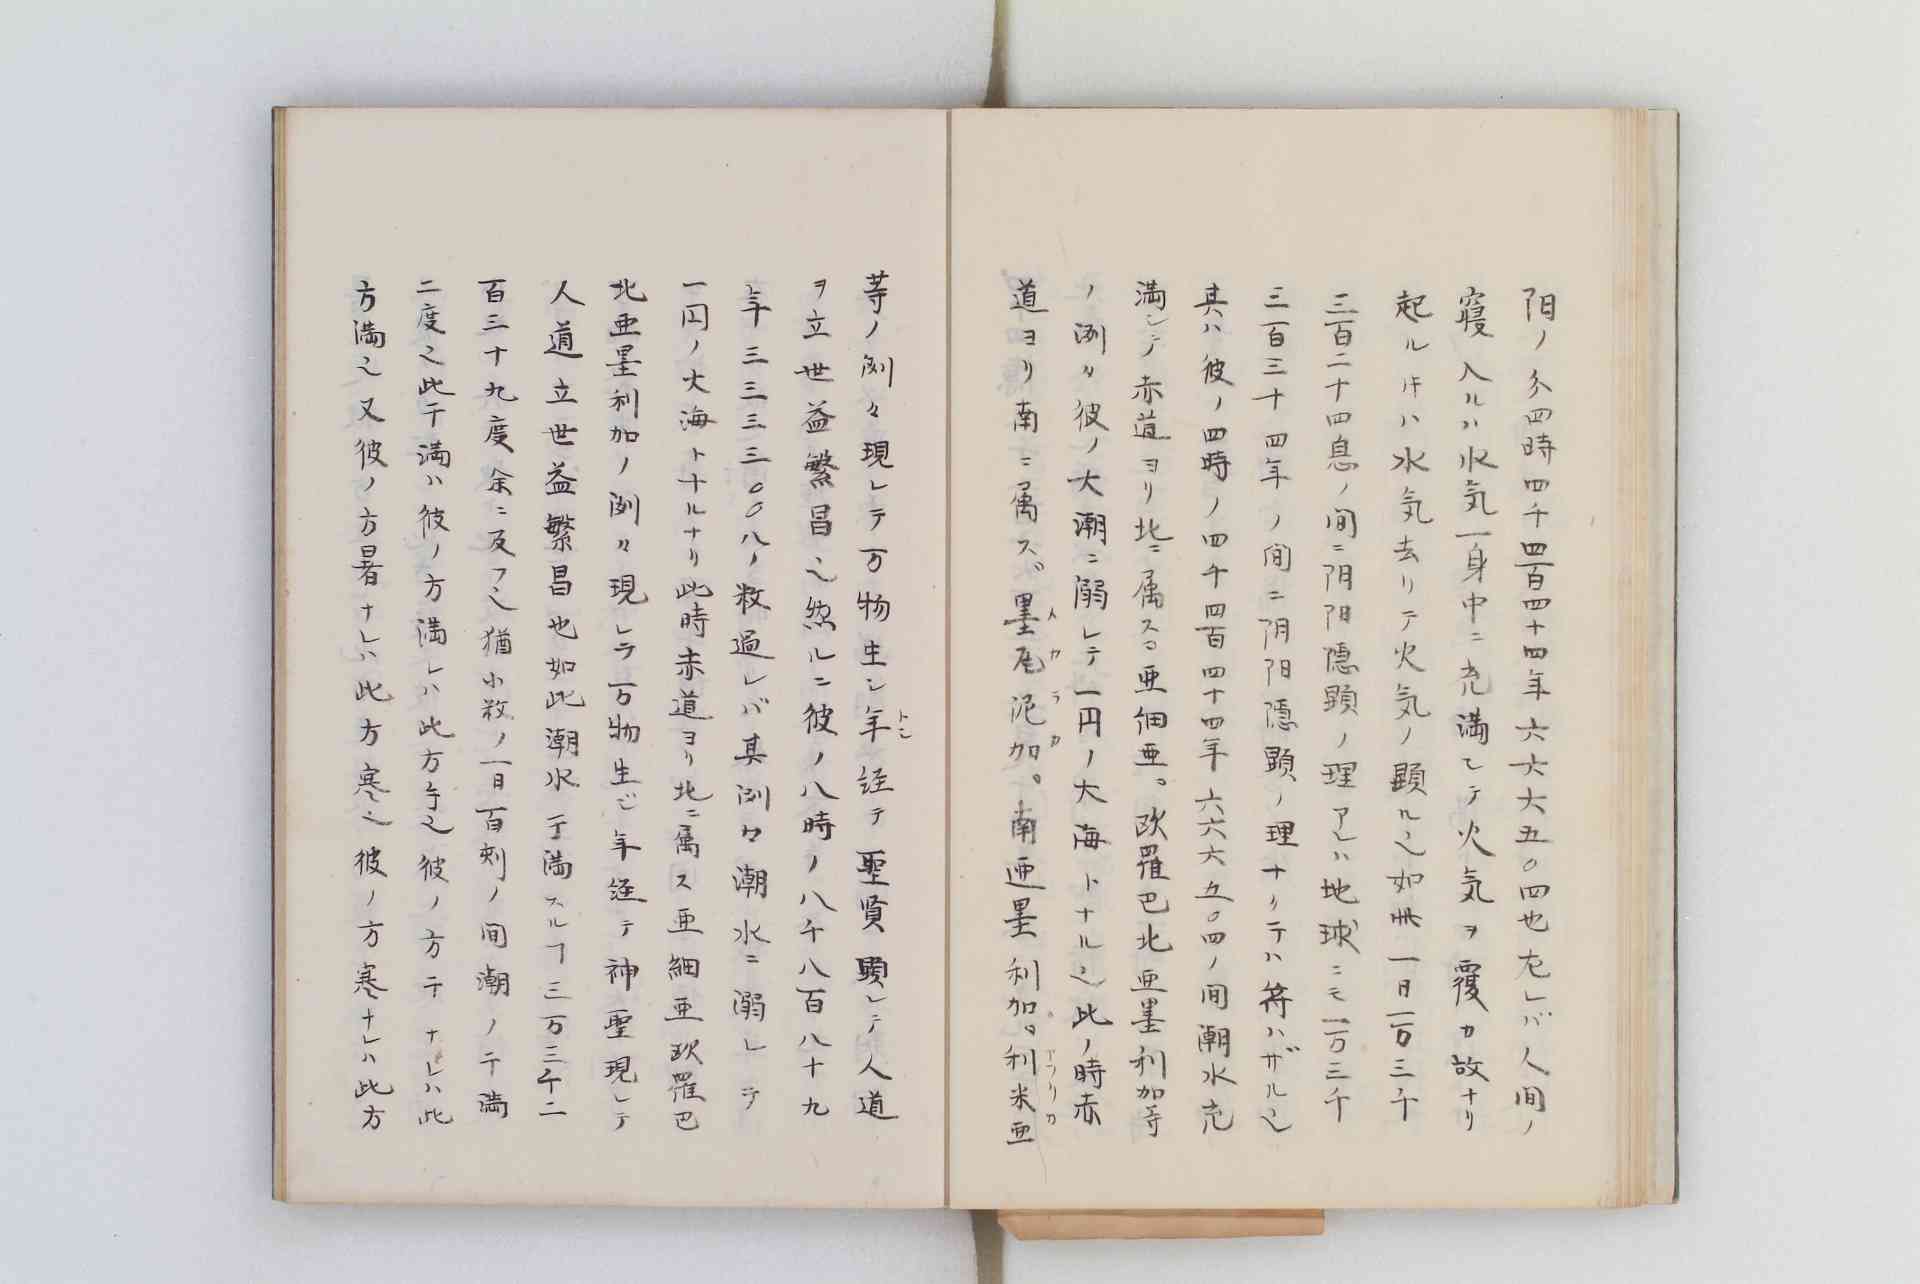 阳ノ分四時四千四百四十四年六六六五〇四也尤レバ人間ノ
寝入ルハ水気一身中ニ充満乄テ火気ヲ覆カ故ナリ
起ル片ハ水気去リテ火気ノ顕ルヽ之如此一日一万三千
三百二十四息ノ間ニ阴阳隠顕ノ理アレハ地球ニモ一万三千
三百三十四年ノ間ニ阴阳隠顕ノ理ナリテハ符ハザル之
其ハ彼ノ四時ノ四千四百四十四年六六六五〇四ノ間潮水充
満シテ赤道ヨリ北ニ属スル亜細亜。欧羅巴北亜墨利加等
ノ洲々彼ノ大潮ニ溺レテ一円ノ大海トナル之此ノ時赤
道ヨリ南ニ属ス。墨瓦泥加。南亜墨利加。利米亜
等ノ洲々現レテ万物生シ年経テ聖賢顕レテ人道
ヲ立世益繁昌之然ルニ彼ノ八時ノ八千八百八十九
年三三三三〇〇八ノ数過レバ其洲々潮水ニ溺レテ
一円ノ大海トナルナリ此時赤道ヨリ北ニ属ス亜細亜欧羅巴
北亜墨利加ノ洲々現レテ万物生ジ年経テ神聖現レテ
人道立世益繁昌也如此潮水干満スルヿ三万三千二
百三十九度余ニ及フ之猶小数ノ一日百刻ノ間潮ノ干満
二度之此干満ハ彼ノ方満レハ此方干之彼ノ方干ナレハ此
方満之又彼ノ方暑ナレハ此方寒之彼ノ方寒ナレハ此方